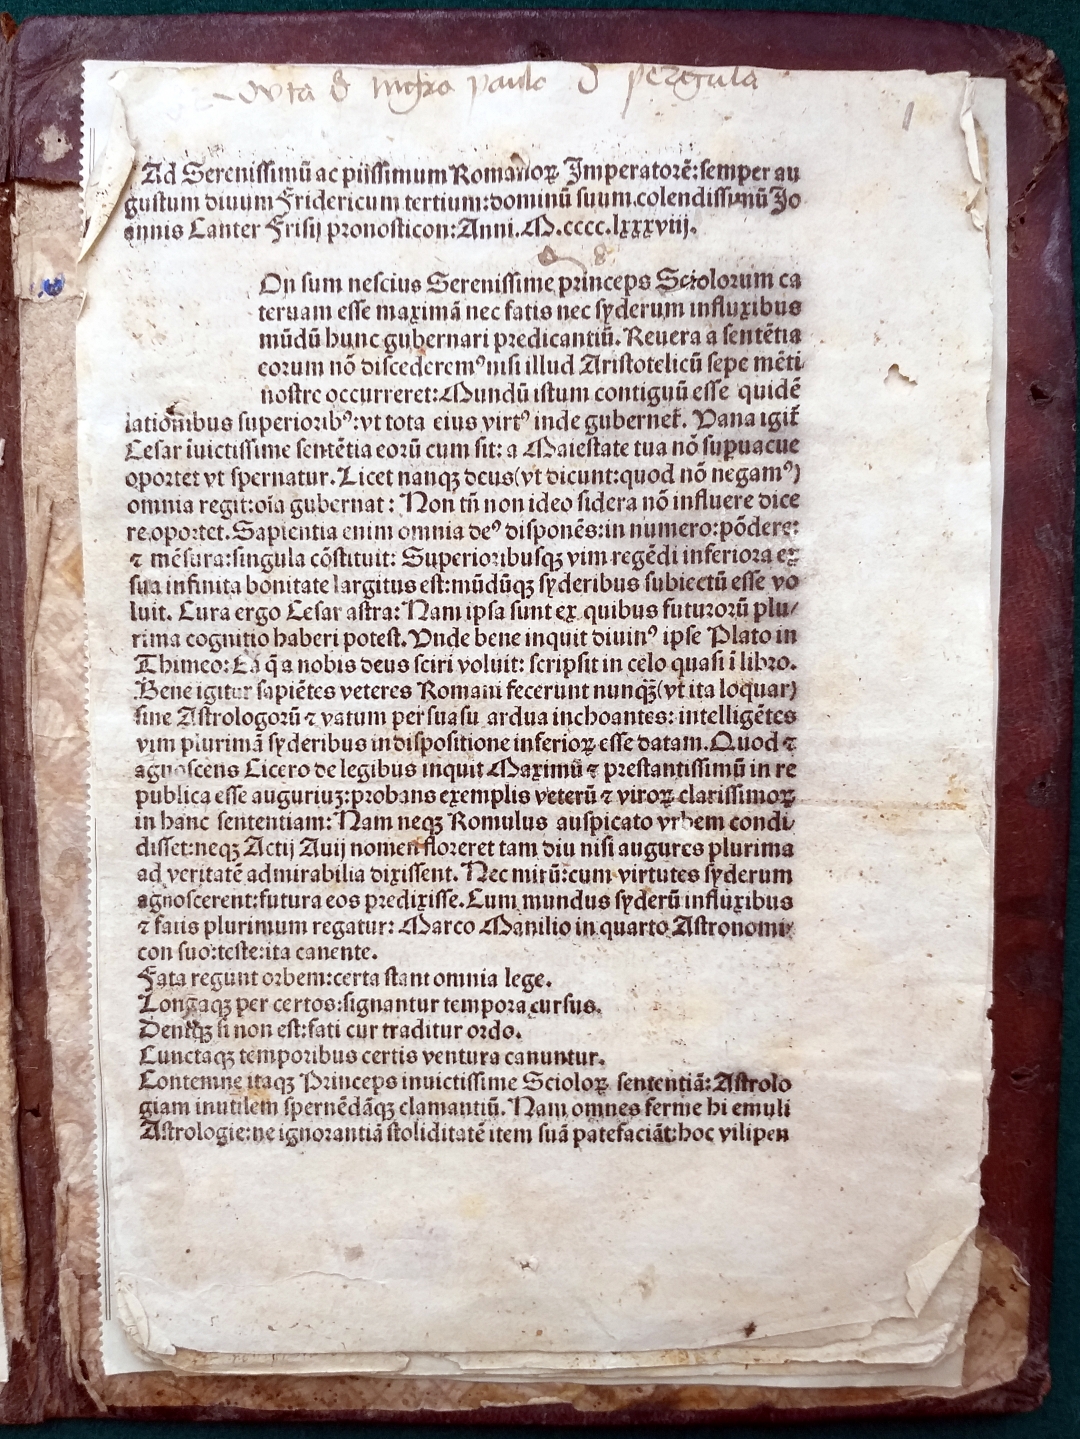 paulo d pergula
1
Ad Serenissimū ac piissimum Romanoꝝ Imperatorē:semper au
gustum diuum Fridericum tertium:dominū suum.colendissimū Jo
annis Canter Frisij pronosticon:Anni.M.cccc.lxxxviij.
On sum nescius Serenissime princeps Sciolorum ca
teruam esse maximā nec fatis nec syderum influxibus
mūdū hunc gubernari predicantiū. Reuera a sentētia
eorum nō discederemꝰ nisi illud Aristotelicū sepe mēti
nostre occurreret:Mundū istum contiguū esse quidē
lationibus superioribꝰ:vt tota eius virtꝰ inde gubernet̄. Vana igit̄
Cesar īuictissime sentētia eorū cum sit: a Maiestate tua nō supuacue
oportet vt spernatur. Licet nanqꝫ deus(vt dicunt:quod nō negamꝰ)
omnia regit:oīa gubernat: Non tn̄ non ideo sidera nō influere dice
re.oportet. Sapientia enim omnia deꝰ disponēs:in numero:pōdere:
⁊ mēsura:singula cōstituit: Superioribusqꝫ vim regēdi inferiora ex
sua infinita bonitate largitus est:mūdūqꝫ syderibus subiectū esse vo
luit. Cura ergo Cesar astra: Nam ipsa sunt ex quibus futurorū plu/
rima cognitio haberi potest. Vnde bene inquit diuinꝰ ipse Plato in
Thimeo: Ea q̄ a nobis deus sciri voluit: scripsit in celo quasi ī libro.
Bene igitur sapiētes veteres Romani fecerunt nunqꝫ̄(vt ita loquar)
sine Astrologorū ⁊ vatum persuasu ardua inchoantes: intelligētes
vim plurimā syderibus in dispositione inferioꝝ esse datam. Quod ⁊
agnoscens Cicero de legibus inquit Maximū ⁊ prestantissimū in re
publica esse auguriuꝫ:probans exemplis veterū ⁊ viroꝝ clarissimoꝝ
in hanc sententiam: Nam neqꝫ Romulus auspicato vrbem condi/
disset:neqꝫ Actij Auij nomen floreret tam diu nisi augures plurima
ad veritatē admirabilia dixissent. Nec mirū:cum virtutes syderum
agnoscerent:futura eos predixisse. Cum mundus syderū influxibus
⁊ fatis plurimum regatur: Marco Manilio in quarto Astronomi/
con suo:teste:ita canente.
Fata regunt orbem:certa stant omnia lege.
Longaqꝫ per certos:signantur tempora cursus.
Deniqꝫ si non est:fati cur traditur ordo.
Cunctaqꝫ temporibus certis ventura canuntur.
Contemne itaqꝫ Princeps inuictissime Scioloꝝ sententiā: Astrolo
giam inutilem spernēdāqꝫ clamantiū. Nam omnes ferme hi emuli
Astrologie:ne ignorantiā stoliditatē item suā patefaciāt:hoc vilipen